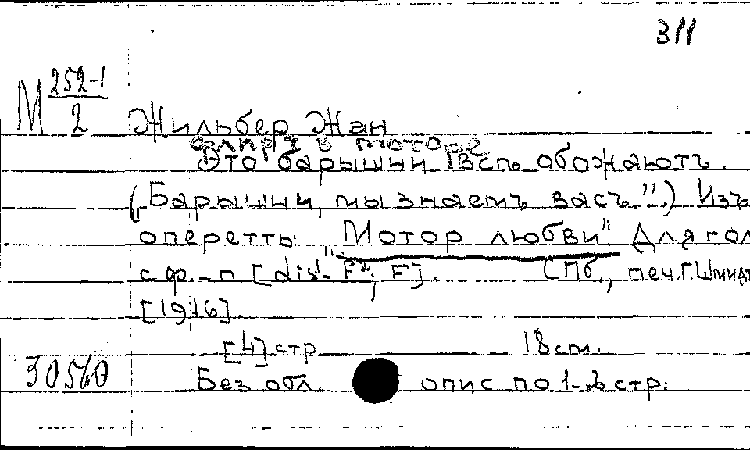 311
М 252-1
2
Жильбер Жан
Флирт в моторе
Это барышни все обожаютъ.
("Барышни, мы знаемъ васъ".) Изъ
оперетты "Мотор любви" Для гол
с ф.-п [dis¹- F²; F]. СПб., печ. Г. Шмидт
[1916]
[4] стр 18 см.
30560 Без обл. опис по 1-2 стр.